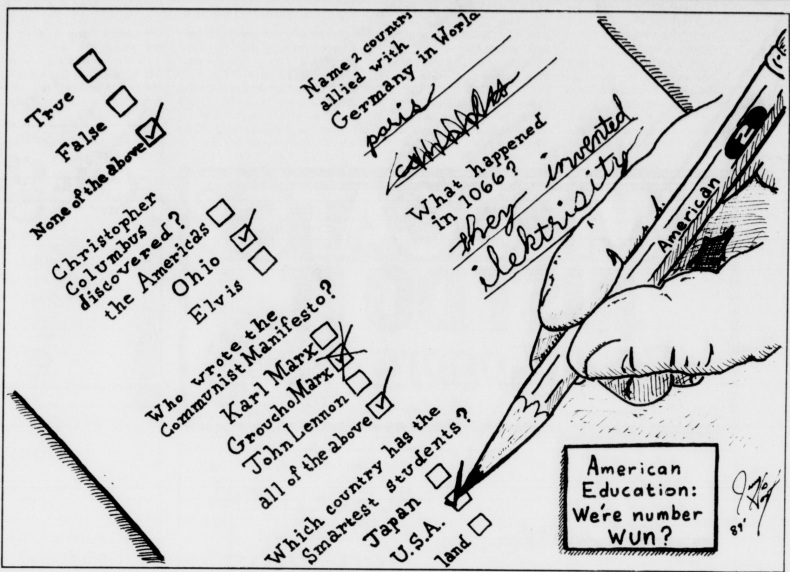 True
False
None of the above
Christopher
Columbus
discovered?
the Americas
Ohio
Elvis
Who wrote the
Communist Manifesto?
Karl Marx
Groucho Marx
John Lennon
all of the above
Which country has the
Smartest students?
Japan
U.S.A.
land
Name 2 countri
allied with
Germany in World
paris
What happened
in 1066?
they invented
ilektrisity
American
2
American
Education:
We're number
WUN?
89'